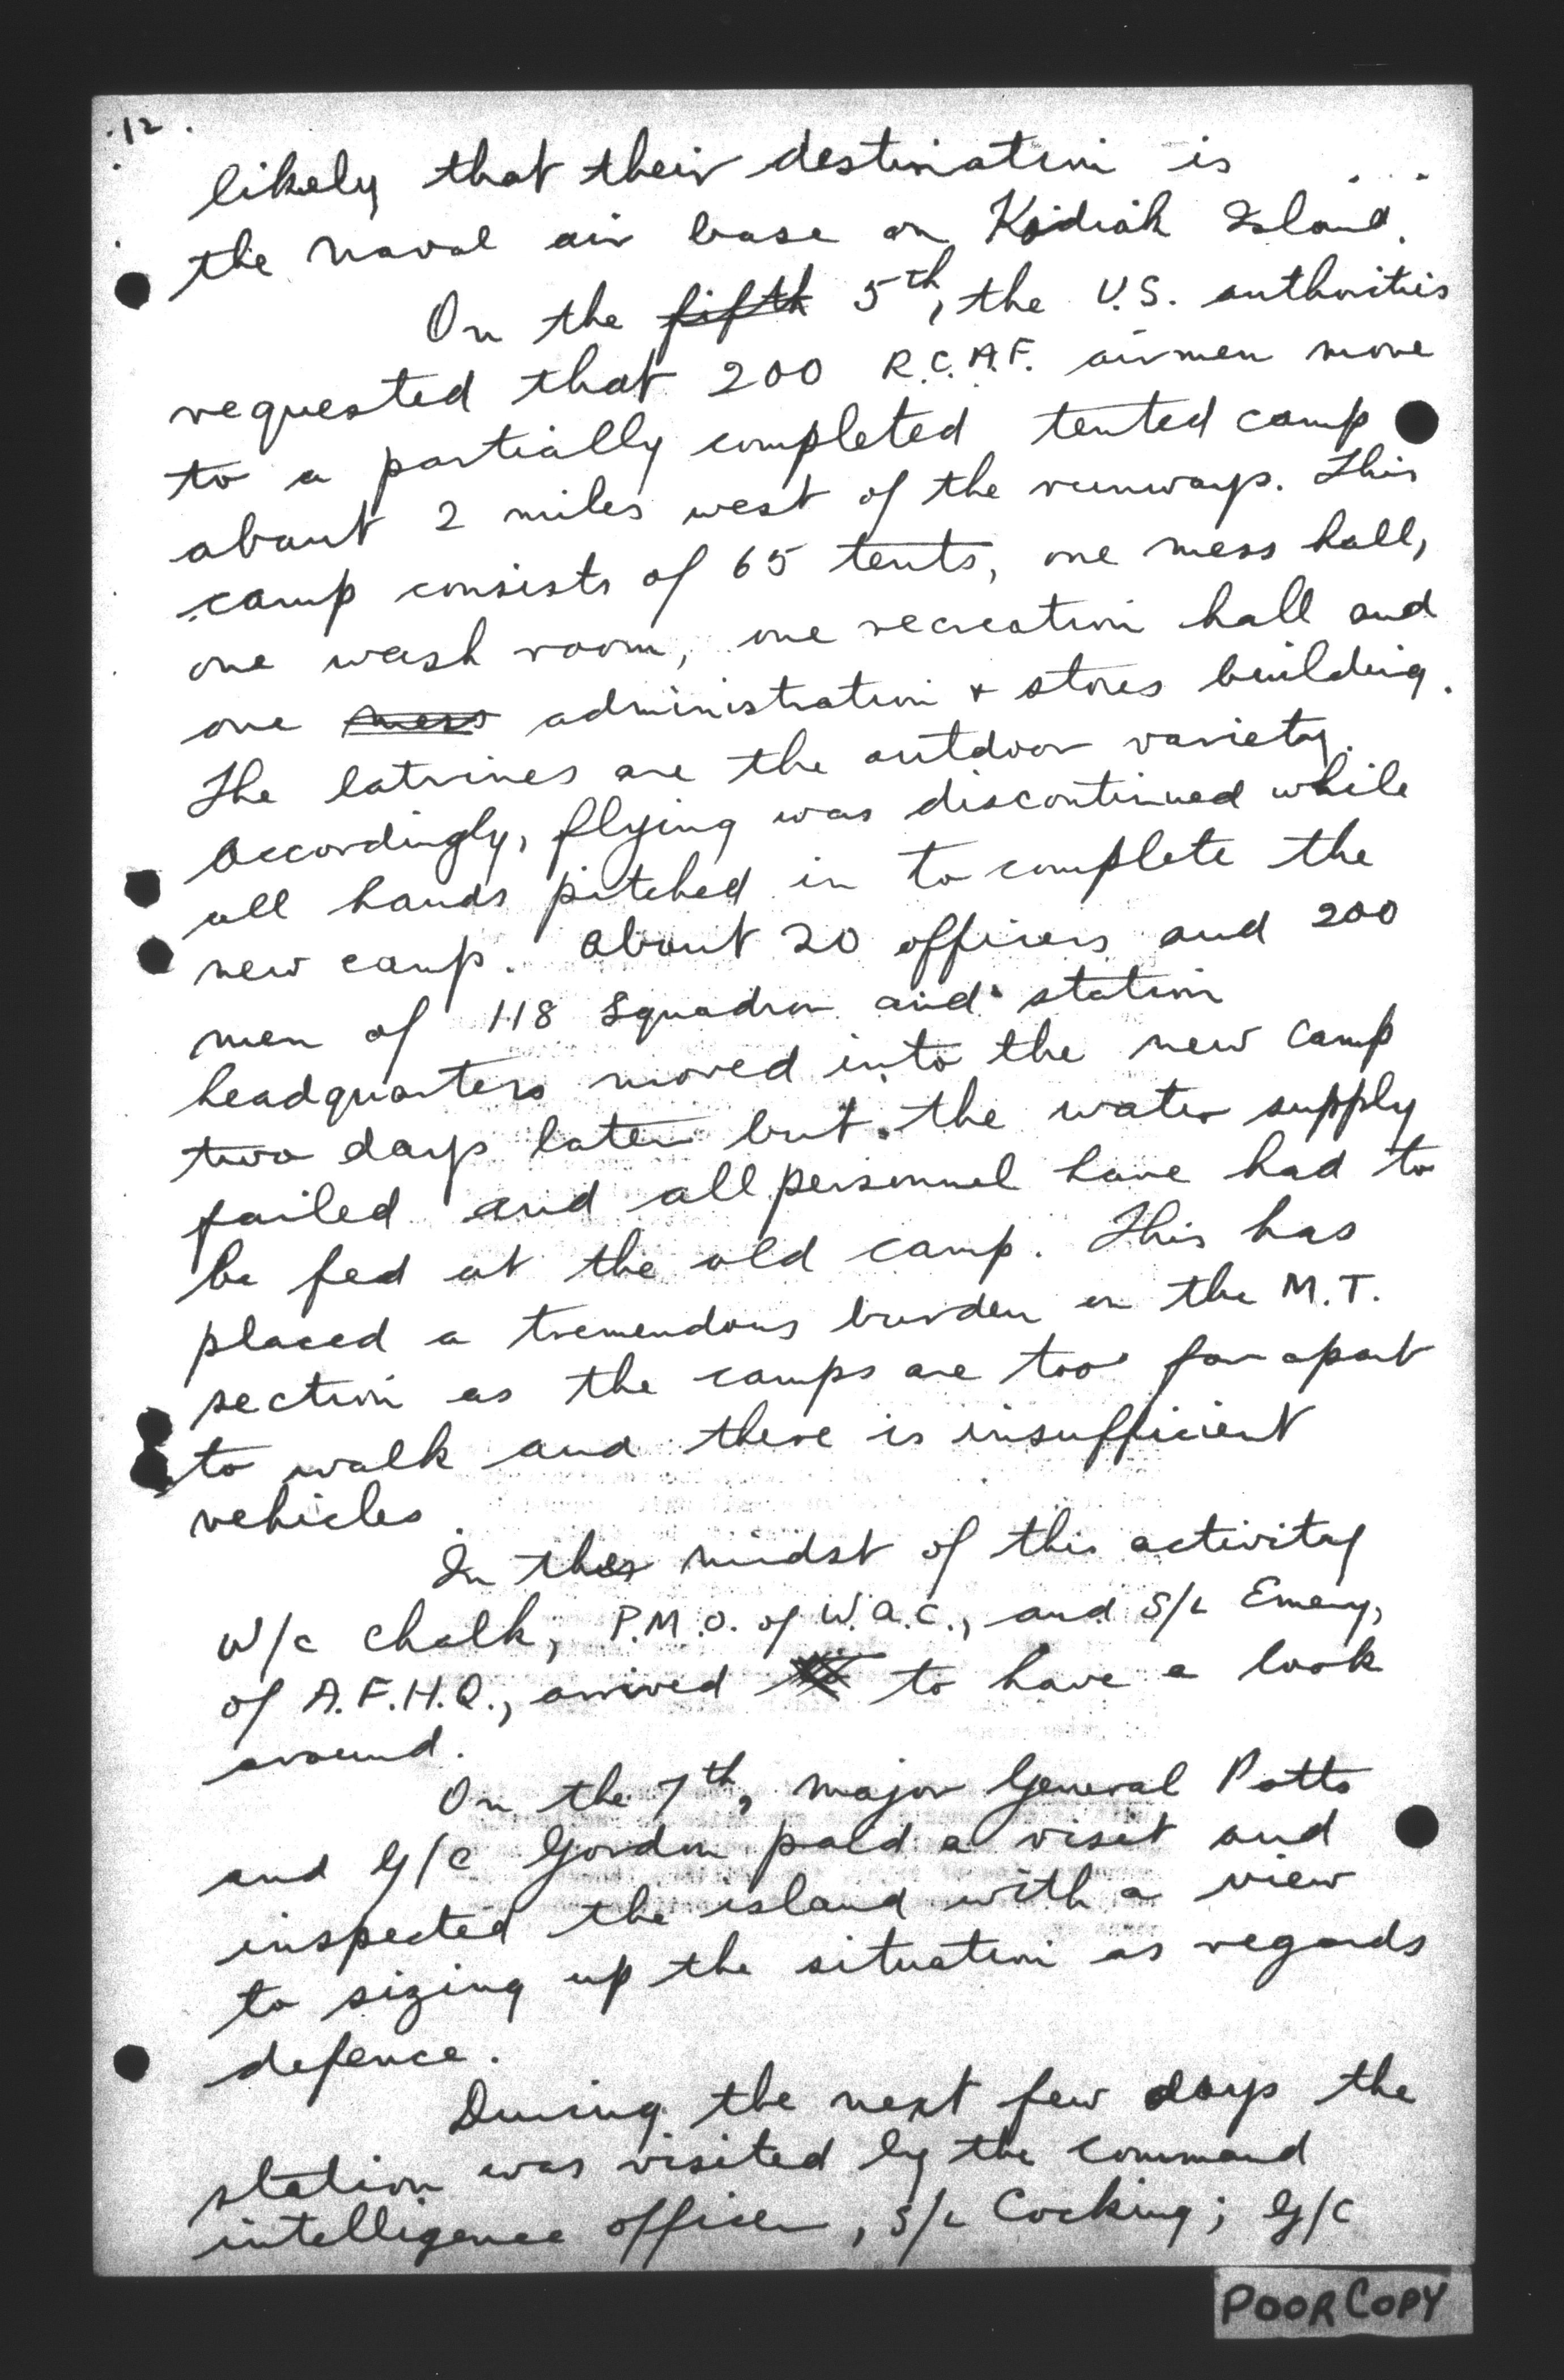 12.
likely that their destination is
the naval air base on Kodiak Island.
On the fifth 5th, the U.S. authorities
requested that 200 R.C.A.F. airmen move
to a partially completed tented camp
about 2 miles west of the runways. This
camp consists of 65 tents, one mess hall,
one wash room, one recreation hall and
one mess administration & stores building.
The latrines are the outdoor variety.
Accordingly, flying was discontinued while
all hands pitched in to complete the
new camp. About 20 officers and 200
men of 118 Squadron and station
headquarters moved into the new camp
two days later but the water supply
failed and all personnel have had to
be fed at the old camp. This has
placed a tremendous burden on the M.T.
section as the camps are too far apart
to walk and there is insufficient
vehicles
In the midst of this activity
W/C Chalk, P.M.O. of W.A.C., and S/L Emery,
of A.F.H.Q., arrived to have a look
around.
On the 7th, Major General Potts
and G/C Gordon paid a visit and
inspected the island with a view
to sizing up the situation as regards
defence.
During the next few days the
station was visited by the command
intelligence officer, S/L Cocking; G/C
POOR COPY